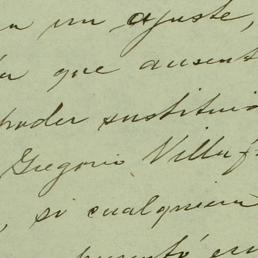 un ajuste,
que ausent
poder sustitui
Gregorio Villaf
, si cualquiera